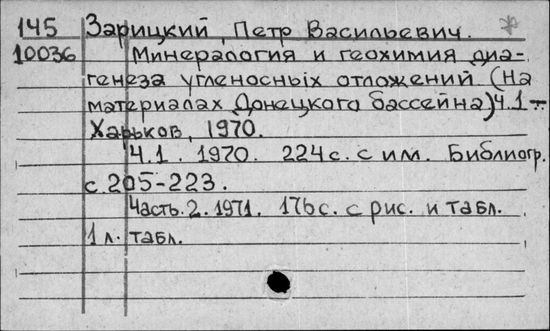 145 Зарицкий, Петр Васильевич.
10036 Минералогия и геохимия диа-
генеза угленосных отложений (На
материалах Донецкого бассейна) Ч.1-
Харьков, 1970.
Ч.1. 1970. 224 с. с им. Библиогр.
с. 205-223.
Часть. 2. 1971. 176 с. с рис. и табл.
1 л. табл.